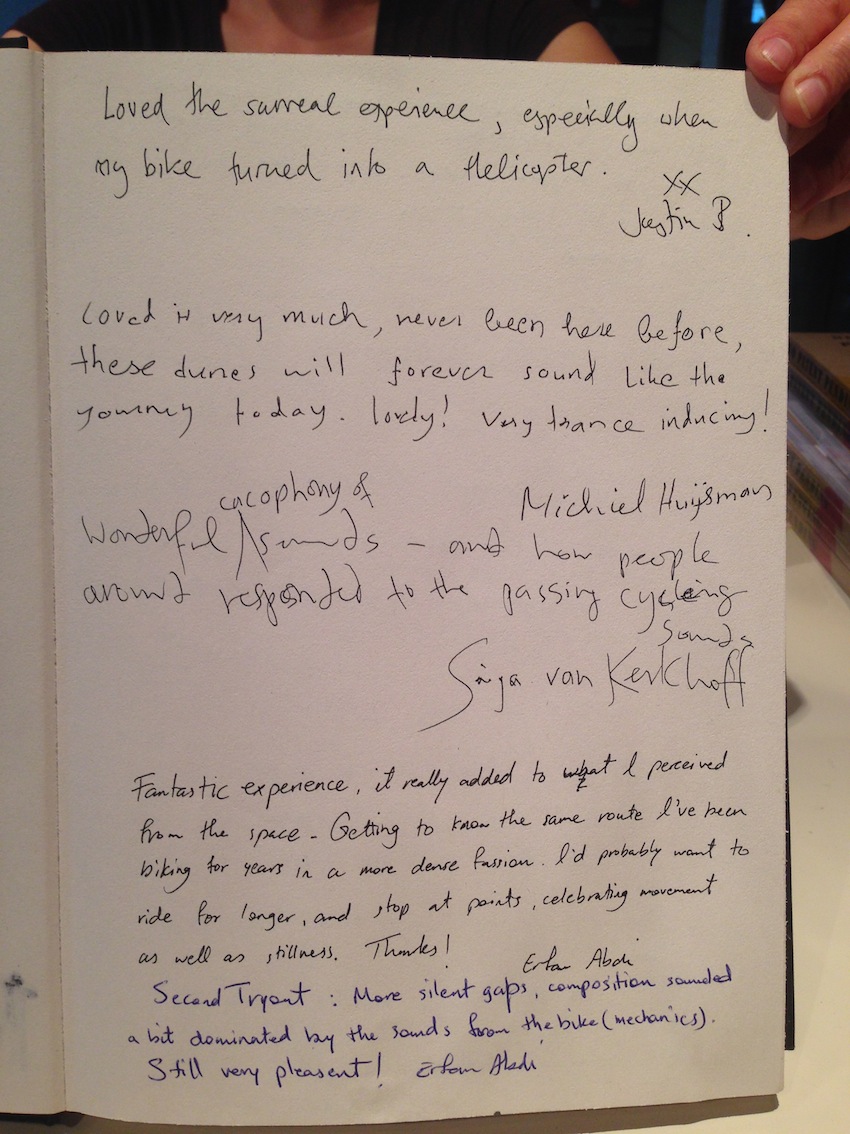 Loved the surreal experience, especially when
my bike turned into a Helicopter.
XX
Justin B.
Loved it very much, never been here before,
these dunes will forever sound like the
yourney today. lovely! Very trance inducing!
Michiel Huijsman
cacophony of
Wonderful sounds – and how people
around responded to the passing cycling
sounds
van Kerkhoff
Fantastic experience, it really added to what I perceived
from the space - Getting to know the same route I've been
biking for years in a more dense fassion. I'd probably want to
ride for longer, and stop at points, celebrating movement
as well as stillness. Thanks!
Erfan Abdi
Second Tryout : More silent gaps, composition sounded
a bit dominated by the sounds from the bike (mechanics).
Still very pleasent! Erfan Abdi